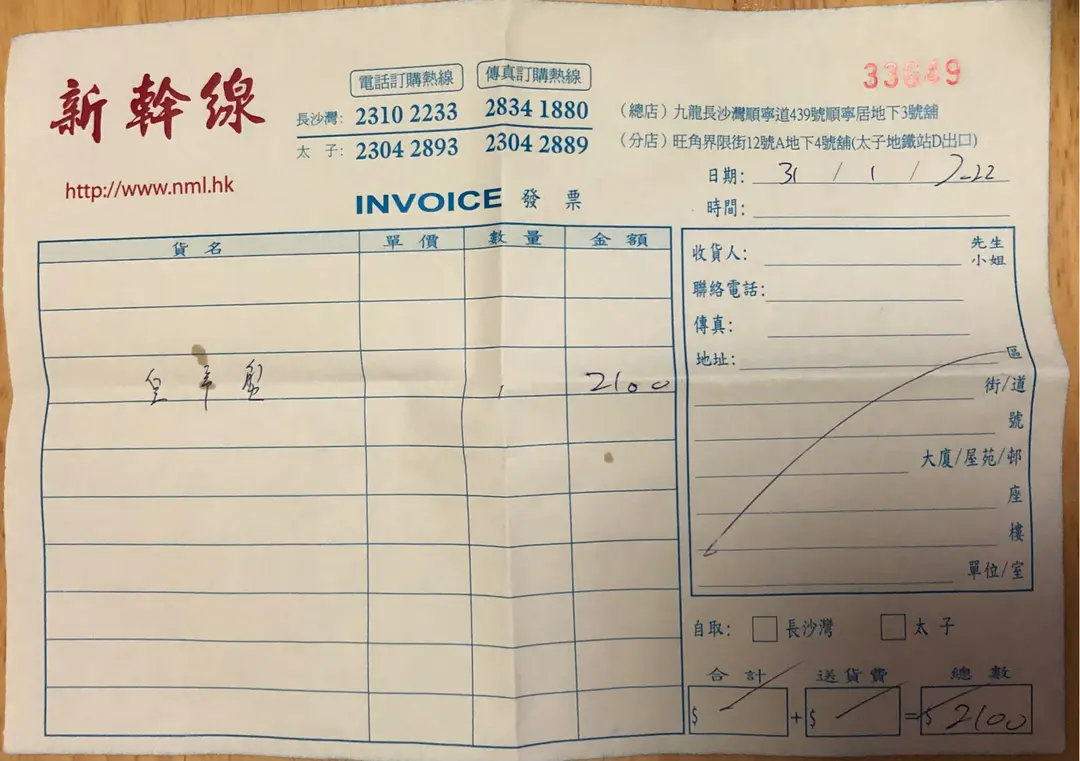 新幹線
http://www.nml.hk
電話訂購熱線 傳真訂購熱線
長沙灣: 2310 2233 2834 1880
太子: 2304 2893 2304 2889
33649
(總店) 九龍長沙灣順寧道439號順寧居地下3號舖
(分店) 旺角界限街12號A地下4號舖(太子地鐵站D出口)
日期: 31 / 1 / 2022
時間:
INVOICE 發票
貨名 單價 數量 金額
皇 1 2100
收貨人: 先生 小姐
聯絡電話:
傳真:
地址: 區
街/道
號
大廈/屋苑/邨
座
樓
單位/室
自取: 長沙灣 太子
合計 送貨費 總數
$ + $ = $ 2100